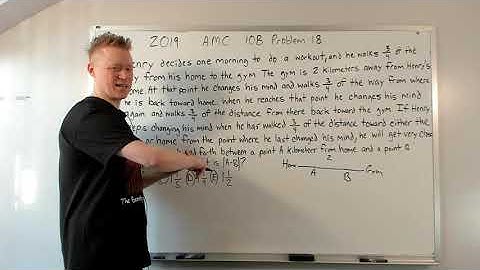 2019 AMC 10B Problem 18
enry decides one morning to do a workout, and he walks 3/4 of the
y from his home to the gym. The gym is 2 kilometers away from Henry's
ome. At that point he changes his mind and walks 3/4 of the way from where
he is back toward home. When he reaches that point he changes his mind
gain and walks 3/4 of the distance from there back toward the gym. If Henry
eps changing his mind when he has walked 3/4 of the distance toward either the
or home from the point where he last changed his mind, he will get very close
and forth between a point A kilometer from home and a point B
t is |A-B|?
(D) 1 1/4 (E) 1 1/2
Home 2 Gym
A B
The